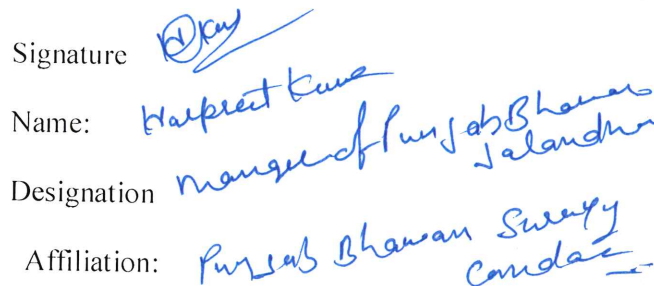 Signature
Name: Harpreet Kaur
Designation Manger of Punjab Bhawan
Jalandhar
Affiliation: Punjab Bhawan Surrey
Canada